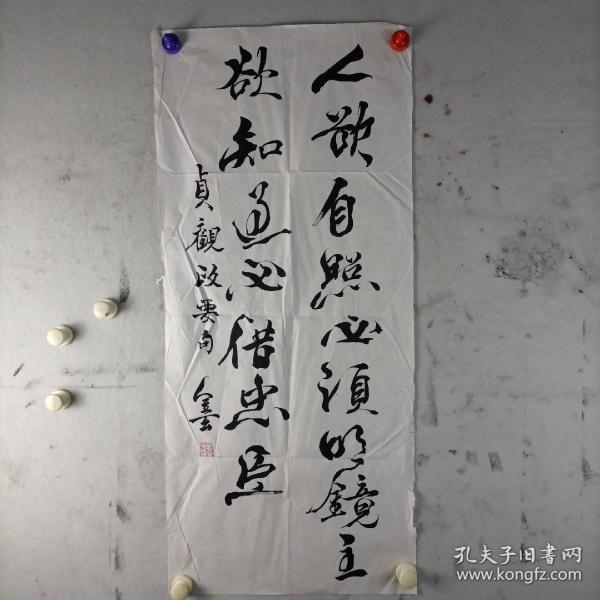 人欲自照必须明镜主
欲知过必借忠臣
贞观政要句
孔夫子旧書网
www.kongfz.com